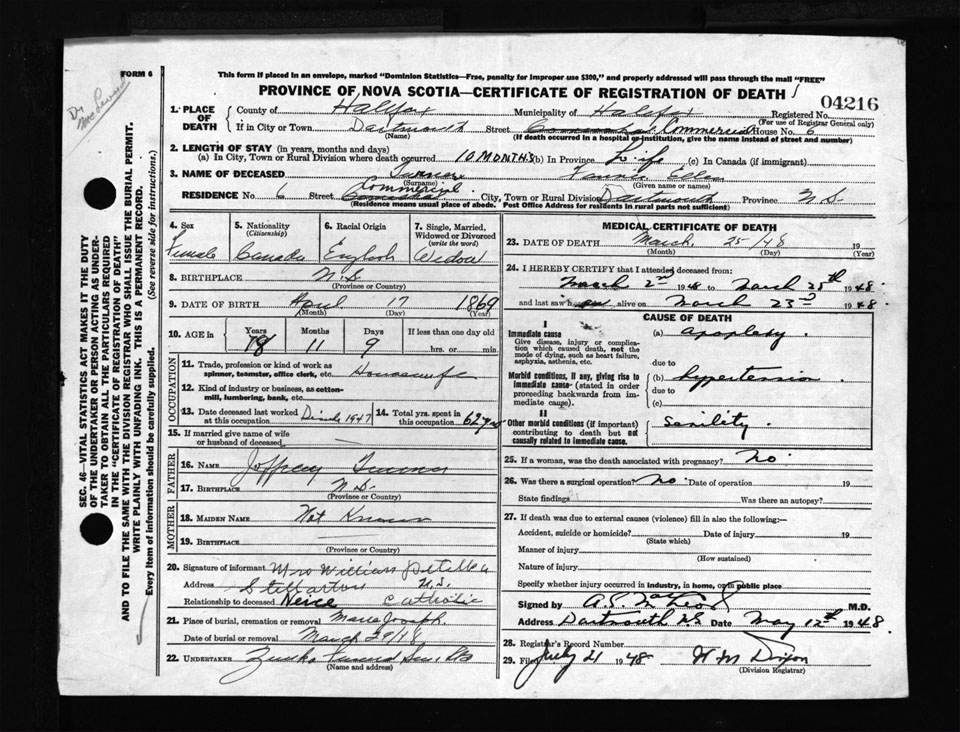 FORM 6
This form if placed in an envelope, marked "Dominion Statistics—Free, penalty for improper use $300," and properly addressed will pass through the mail "FREE"
PROVINCE OF NOVA SCOTIA—CERTIFICATE OF REGISTRATION OF DEATH
04216
1. PLACE OF DEATH
County of Halifax Municipality of Halifax Registered No.
(For use of Registrar General only)
If in City or Town Dartmouth Street Commercial House No. 6
(Name) (If death occurred in a hospital or institution, give the name instead of street and number)
2. LENGTH OF STAY (in years, months and days)
(a) In City, Town or Rural Division where death occurred 10 MONTHS (b) In Province Life (c) In Canada (if immigrant)
3. NAME OF DECEASED Turner
(Surname) (Given name or names)
RESIDENCE No. 6 Street Commercial City, Town or Rural Division Dartmouth Province N.S.
(Residence means usual place of abode. Post Office Address for residents in rural parts not sufficient)
4. Sex
Female
5. Nationality
(Citizenship)
Canada
6. Racial Origin
English
7. Single, Married, Widowed or Divorced
(write the word)
Widow
8. BIRTHPLACE N.S.
(Province or Country)
9. DATE OF BIRTH April 17 1869
(Month) (Day) (Year)
10. AGE in Years Months Days If less than one day old
78 11 9 hrs. or min.
OCCUPATION
11. Trade, profession or kind of work as
spinner, teamster, office clerk, etc. Housewife
12. Kind of industry or business, as cotton-
mill, lumbering, bank, etc.
13. Date deceased last worked
at this occupation 1947
14. Total yrs. spent in
this occupation 62 yrs
15. If married give name of wife
or husband of deceased
FATHER
16. NAME Joffrey Turner
17. BIRTHPLACE N.S.
(Province or Country)
MOTHER
18. MAIDEN NAME Not Known
19. BIRTHPLACE
(Province or Country)
20. Signature of informant Mrs William
Address Stellarton N.S.
Relationship to deceased Neice Catholic
21. Place of burial, cremation or removal
Date of burial or removal March 29/48
22. UNDERTAKER
(Name and address)
MEDICAL CERTIFICATE OF DEATH
23. DATE OF DEATH March 25/48 19
(Month) (Day) (Year)
24. I HEREBY CERTIFY that I attended deceased from:
March 2nd 1948 to March 25th 1948.
and last saw alive on March 23rd 1948.
CAUSE OF DEATH
I
Immediate cause
Give disease, injury or complica-
tion which caused death, not the
mode of dying, such as heart failure,
asphyxia, asthenia, etc.
(a) apoplexy.
due to
Morbid conditions, if any, giving rise to
immediate cause (stated in order
proceeding backwards from im-
mediate cause).
(b) hypertension
due to
(c)
II
Other morbid conditions (if important)
contributing to death but not
causally related to immediate cause.
senility.
25. If a woman, was the death associated with pregnancy? no
26. Was there a surgical operation? no Date of operation 19
State findings Was there an autopsy?
27. If death was due to external causes (violence) fill in also the following:—
Accident, suicide or homicide? Date of injury 19
(State which)
Manner of injury
(How sustained)
Nature of injury
Specify whether injury occurred in industry, in home, or in public place
Signed by M.D.
Address Dartmouth N.S. Date May 12th 1948.
28. Registrar's Record Number
29. Filed July 21 1948 W M Dixon
(Division Registrar)
SEC. 46—VITAL STATISTICS ACT MAKES IT THE DUTY
OF THE UNDERTAKER OR PERSON ACTING AS UNDER-
TAKER TO OBTAIN ALL THE PARTICULARS REQUIRED
IN THE "CERTIFICATE OF REGISTRATION OF DEATH"
AND TO FILE THE SAME WITH THE DIVISION REGISTRAR WHO SHALL ISSUE THE BURIAL PERMIT.
WRITE PLAINLY WITH UNFADING INK. THIS IS A PERMANENT RECORD.
Every item of information should be carefully supplied. (See reverse side for instructions.)